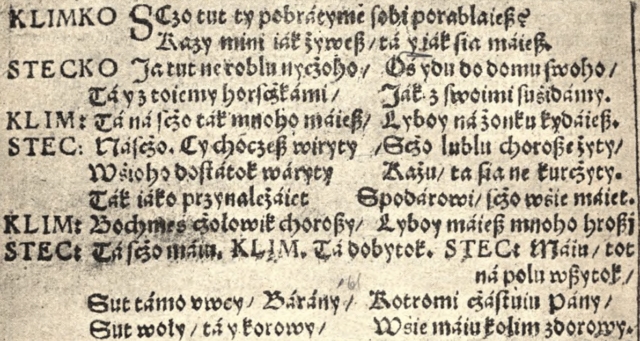 KLIMKO Sczo tut ty pobrátymé sobi porablaiesz?
Kazy mini iák żywesz/ tá y iák sia máiesz.
STECKO Ja tut ne roblu nyczoho/ Oś ydu do domu swoho/
Tá y z toiemy horsczkámi/ Ják z swoimi susidámy.
KLIM: Tá ná sczo ták mnoho máiesz/ Lyboy ná żonku kydáiesz.
STEC: Násczo. Cy chóczesz wiryty/ Sczo lublu choroşe żyty/
Wsioho dostátok wáryty Każu/ ta sia ne kurczyty.
Ták iáko przynależáiet Spodárowi/ sczo wsie máiet.
KLIM: Bochmes czołowik choroszy/ Lyboy máiesz mnoho hroszy
STEC: Tá sczo máiu. KLIM. Tá dobytok. STEC: Máiu/ tot
ná polu wszytok/
Sut támo vwcy/ Bárány/ Kotromi czástuiu Pány/
Sut woły/ tá y korowy/ Wsie máiu kolim zdorowy.